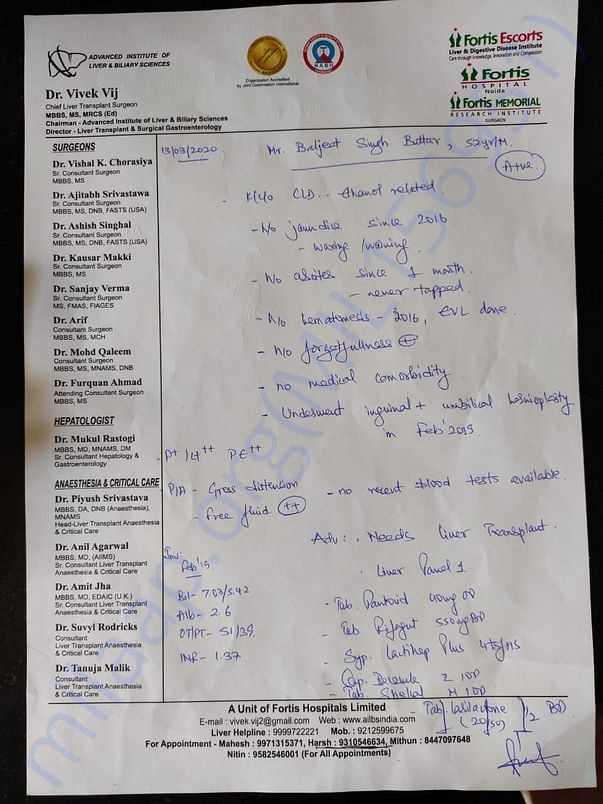 ADVANCED INSTITUTE OF
LIVER & BILIARY SCIENCES
Organisation Accredited
by Joint Commission International
NABH
Fortis Escorts
Liver & Digestive Disease Institute
Care through Knowledge, Innovation and Compassion
Fortis
HOSPITAL
Noida
Fortis MEMORIAL
RESEARCH INSTITUTE
GURGAON
Dr. Vivek Vij
Chief Liver Transplant Surgeon
MBBS, MS, MRCS (Ed)
Chairman - Advanced Institute of Liver & Biliary Sciences
Director - Liver Transplant & Surgical Gastroenterology
SURGEONS
Dr. Vishal K. Chorasiya
Sr. Consultant Surgeon
MBBS, MS
Dr. Ajitabh Srivastawa
Sr. Consultant Surgeon
MBBS, MS, DNB, FASTS (USA)
Dr. Ashish Singhal
Sr. Consultant Surgeon
MBBS, MS, DNB, FASTS (USA)
Dr. Kausar Makki
Sr. Consultant Surgeon
MBBS, MS
Dr. Sanjay Verma
Sr. Consultant Surgeon
MS, FMAS, FIAGES
Dr. Arif
Consultant Surgeon
MBBS, MS, MCH
Dr. Mohd Qaleem
Consultant Surgeon
MBBS, MS, MNAMS, DNB
Dr. Furquan Ahmad
Attending Consultant Surgeon
MBBS, MS
HEPATOLOGIST
Dr. Mukul Rastogi
MBBS, MD, MNAMS, DM
Sr. Consultant Hepatology &
Gastroenterology
ANAESTHESIA & CRITICAL CARE
Dr. Piyush Srivastava
MBBS, DA, DNB (Anaesthesia),
MNAMS
Head-Liver Transplant Anaesthesia
& Critical Care
Dr. Anil Agarwal
MBBS, MD, (AIIMS)
Sr. Consultant Liver Transplant
Anaesthesia & Critical Care
Dr. Amit Jha
MBBS, MD, EDAIC (U.K.)
Sr. Consultant Liver Transplant
Anaesthesia & Critical Care
Dr. Suvyl Rodricks
Consultant
Liver Transplant Anaesthesia
& Critical Care
Dr. Tanuja Malik
Consultant
Liver Transplant Anaesthesia
& Critical Care
13/03/2020 Mr. Baljeet Singh Buttar, 52yr/M.
A+ve
- K/c/o CLD.. Ethanol related.
- H/o jaundice since 2016
- waxing/waning.
- H/o ascites since 1 month.
- never tapped.
- H/o hematemesis - 2016, EVL done.
- H/o forgetfullness +
- no medical comorbidity.
- Underwent inguinal + umbilical hernioplasty
in Feb'2019.
P+ I4++ PE++
P/A - Gross distention
- free fluid ++
- no recent blood tests available.
Inv:
Feb'19
Bil - 7.03/5.42
Alb - 2.6
OT/PT - 51/39
INR - 1.37
Adv: . Needs Liver Transplant.
. Liver Panel 1.
. Tab. Pantoid 40mg OD
- Tab Rifagut 550mg BD
- Syp. Lactihep Plus
- Cap.
- Tab. Shelcal
- Tab. Lasilactone
(20/50) 1/2 BD
A Unit of Fortis Hospitals Limited
E-mail : vivek.vij2@gmail.com Web : www.ailbsindia.com
Liver Helpline : 9999722221 Mob. : 9212599675
For Appointment - Mahesh : 9971315371, Harsh : 9310546634, Mithun : 8447097648
Nitin : 9582546001 (For All Appointments)